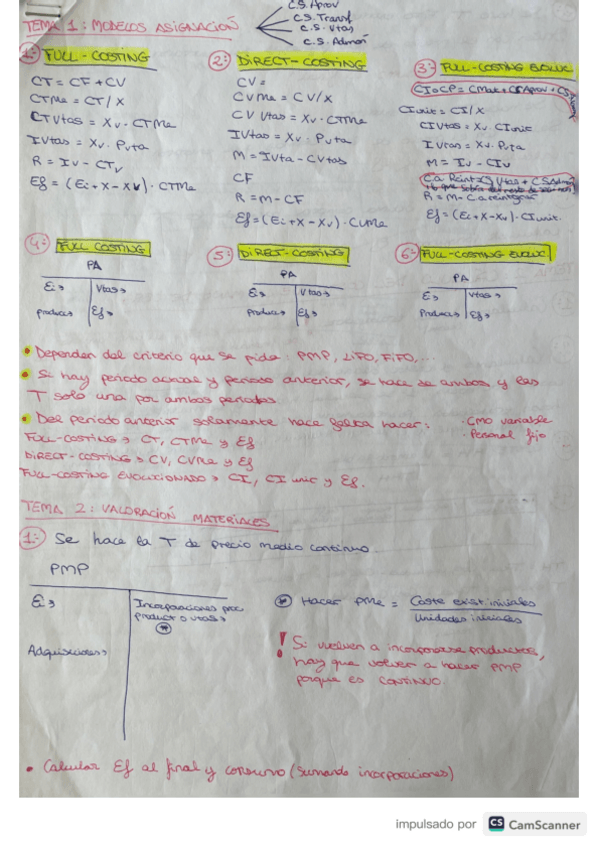 C.S. Aprov
C.S. Transf
C.S. Vtas
C.S. Admón
TEMA 1: MODELOS ASIGNACIÓN
1: FULL-COSTING
CT = CF + CV
CTMe = CT / X
CTVtas = Xv · CTMe
IVtas = Xv · Pvta
R = Iv - CTv
Ef = (Ei + X - Xv) · CTMe
2: DIRECT-COSTING
CV =
CVMe = CV/X
CV Vtas = Xv · CTMe
IVtas = Xv · Pvta
M = IVta - CVtas
CF
R = M - CF
Ef = (Ei + X - Xv) · CVMe
3: FULL-COSTING EVOLUC
CIoCP = CMat + CSAprov + CS
CIunit = CI/X
CIVtas = Xv · CIunit
IVtas = Xv · Pvta
M = Iv - CIv
Ca Reint = CSVtas + CSAdmón
R = M - Ca reintegrar
Ef = (Ei + X - Xv) · CIunit.
4: FULL COSTING
PA
Ei→ Vtas→
Produce→ Ef→
5: DIRECT-COSTING
PA
Ei→ Vtas→
Produce→ Ef→
6: FULL-COSTING EVOLUC
PA
Ei→ Vtas→
Produce→ Ef→
• Depender del criterio que se pida: PMP, LIFO, FIFO,...
• Si hay periodo actual y periodo anterior, se hace de ambos y las
T solo una por ambos periodos
• Del periodo anterior solamente hace falta hacer:
· CMO variable
· Personal fijo
FULL-COSTING → CT, CTMe y Ef
DIRECT-COSTING → CV, CVMe y Ef
FULL-COSTING EVOLUCIONADO → CI, CI unit y Ef.
TEMA 2: VALORACIÓN MATERIALES
1: Se hace la T de precio medio continuo.
PMP
Ei→
Incorporaciones proc
product o vtas→
Adquisiciones→
* Hacer PMe = Coste exist. iniciales
Unidades iniciales
! Si vuelven a incorporarse productos,
hay que volver a hacer PMP
porque es CONTINUO.
• Calcular Ef al final y consumo (sumando incorporaciones)
impulsado por CS CamScanner